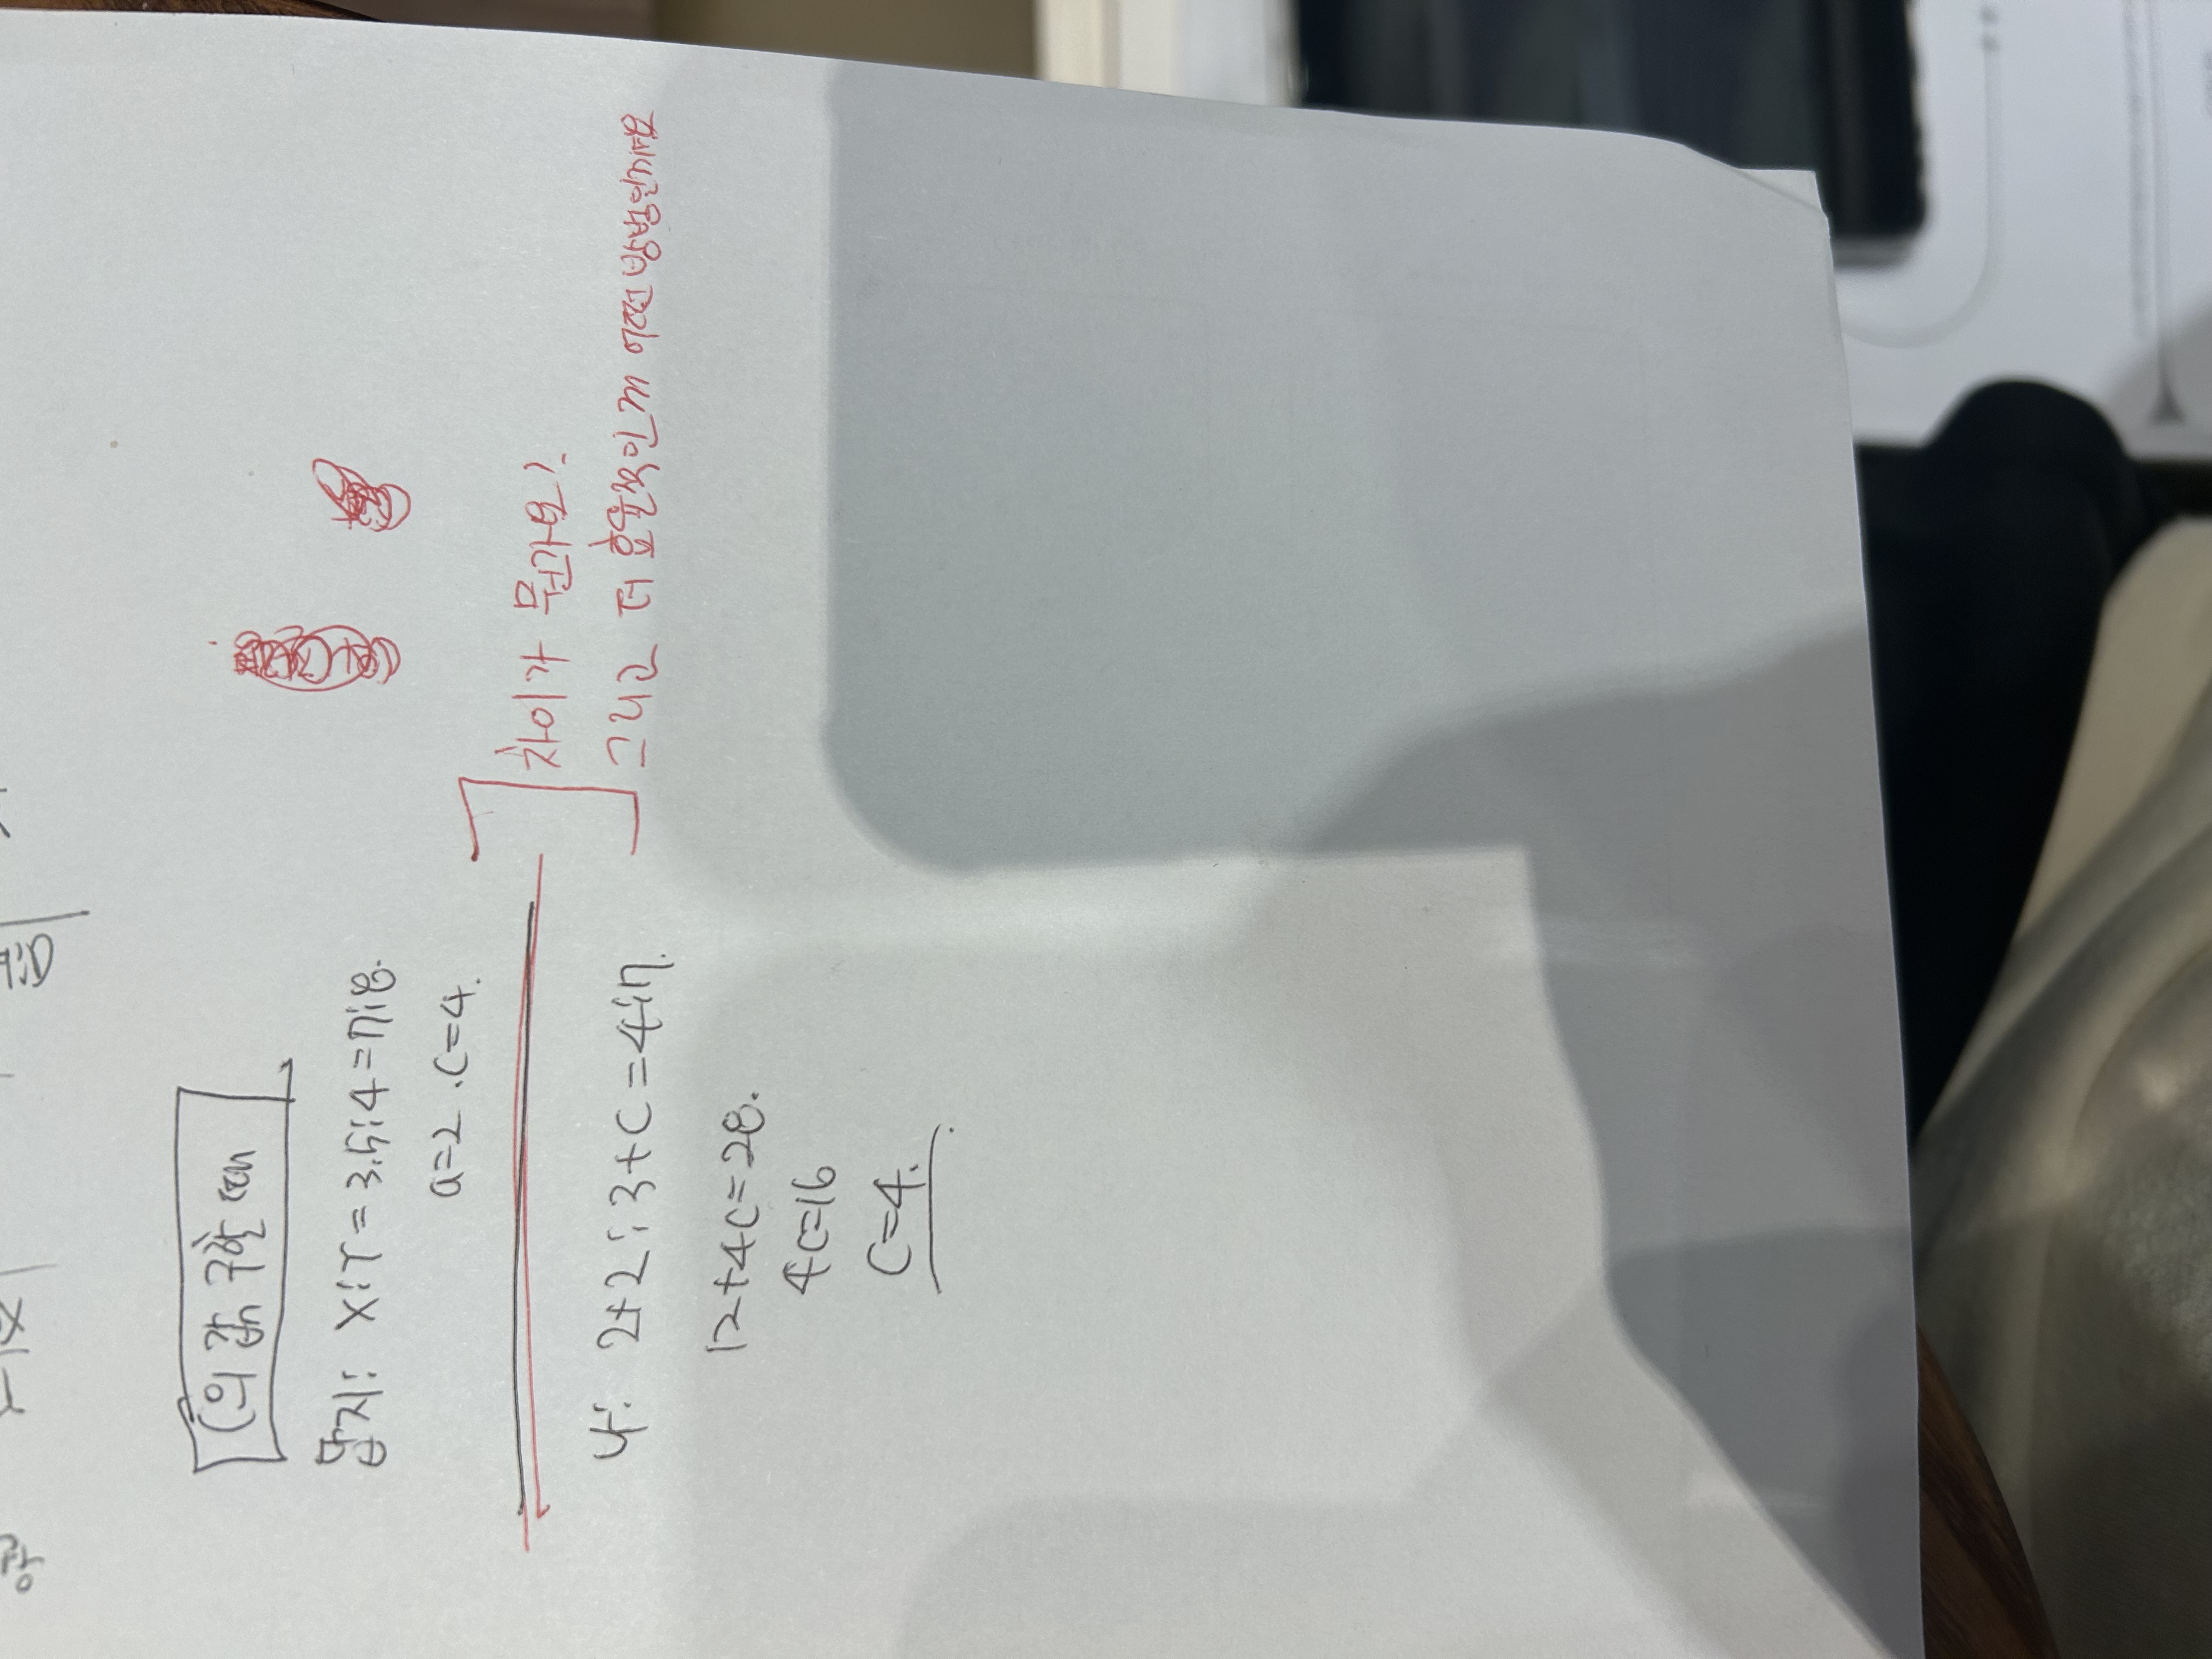 C의 값 구할 때
답지: x:r=3.5:4=7:8.
a=2. c=4.
나: 2+2:3+C=4:7.
12+4C=28.
4C=16
C=4.
차이가 뭔가요?
그리고 더 효율적인게 어떤 방향인가요